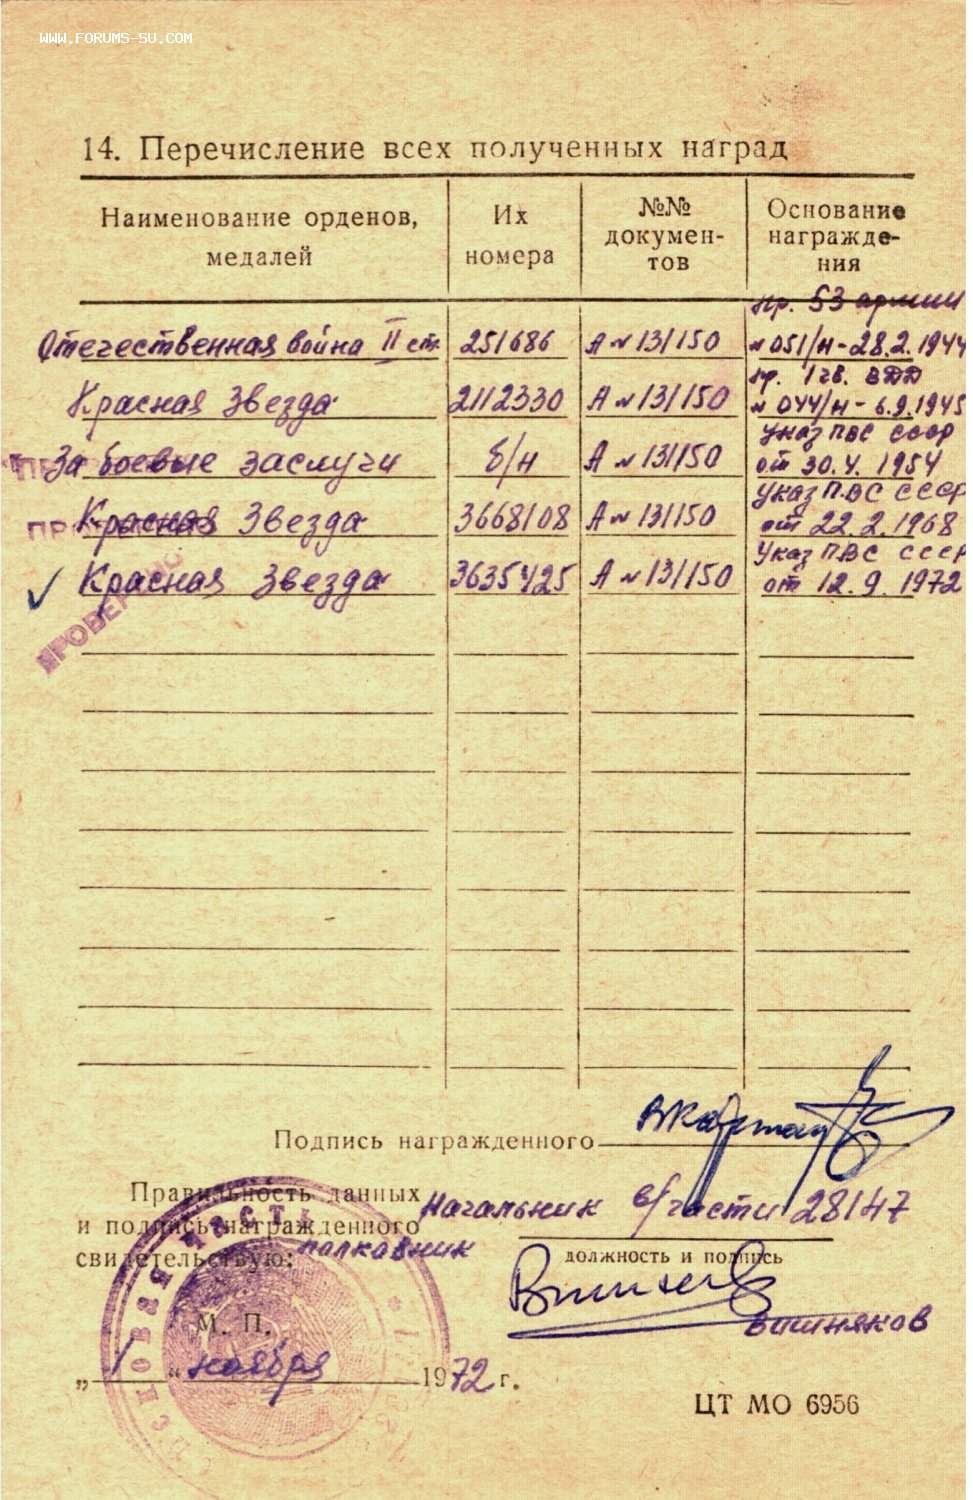 WWW.FORUMS-SU.COM
14. Перечисление всех полученных наград
Наименование орденов, медалей | Их номера | №№ докумен-тов | Основание награжде-ния
пр. 53 армии
Отечественная война II ст. 251686 А № 131150 № 051/н - 28.2.1944
пр. 1 гв. ВДД
Красная Звезда 2112330 А № 131150 № 044/н - 6.9.1945
Указ ПВС СССР
За боевые заслуги б/н А № 131150 от 30.4.1954
Указ ПВС СССР
Красная Звезда 3668108 А № 131150 от 22.2.1968
Указ ПВС СССР
Красная Звезда 3635425 А № 131150 от 12.9.1972
ПРОВЕРЕНО
Подпись награжденного
Правильность данных
и подпись награжденного Начальник в/части 28147
свидетельствую: полковник
должность и подпись
Вишняков
М. П.
„ 1 “ ноября 1972 г.
ЦТ МО 6956